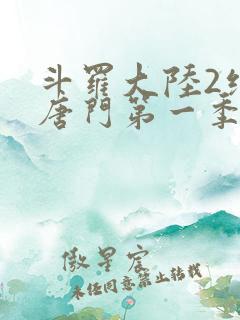 斗羅大陸2
唐門第一季
傲星宸
未经同意禁止转载